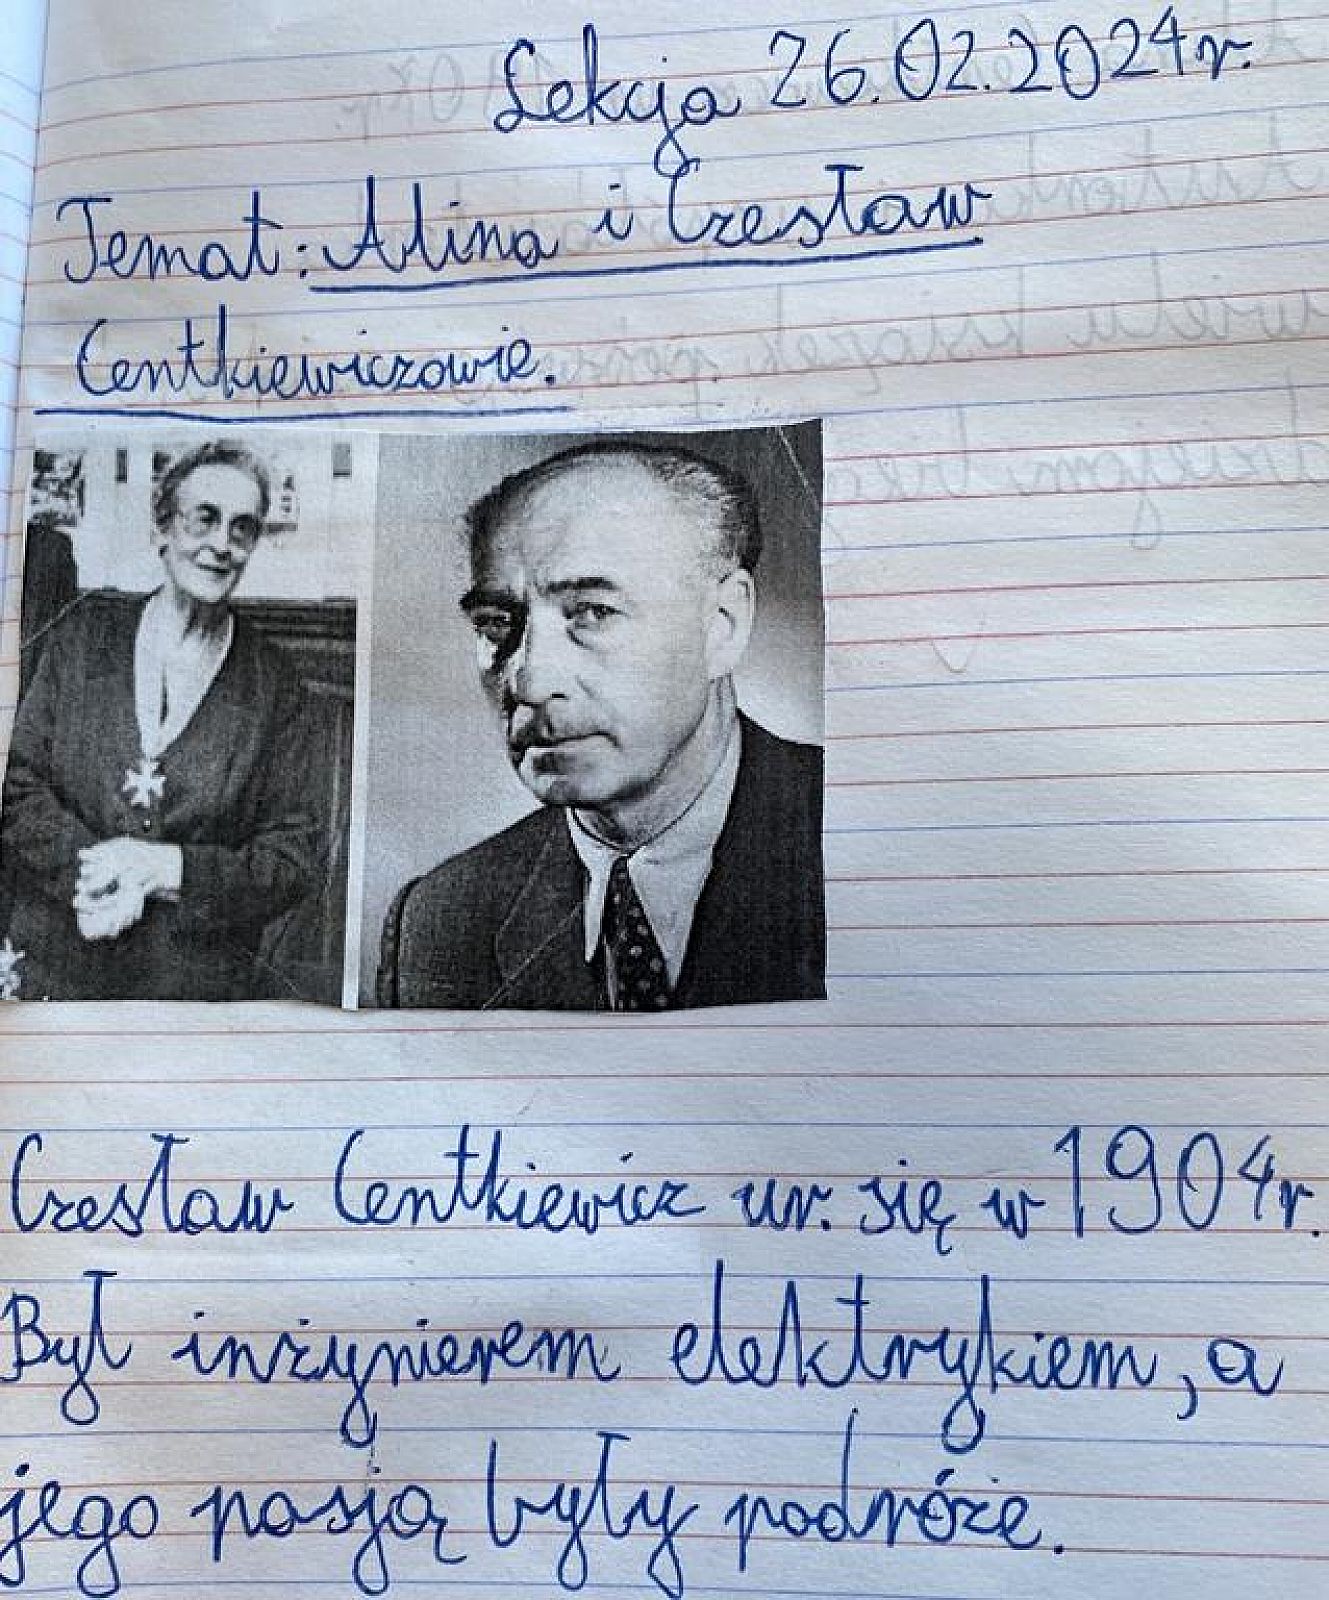 Lekcja 26.02.2024r.
Temat: Alina i Czesław
Centkiewiczowie.
Czesław Centkiewicz ur. się w 1904r.
Był inżynierem elektrykiem, a
jego pasją były podróże.